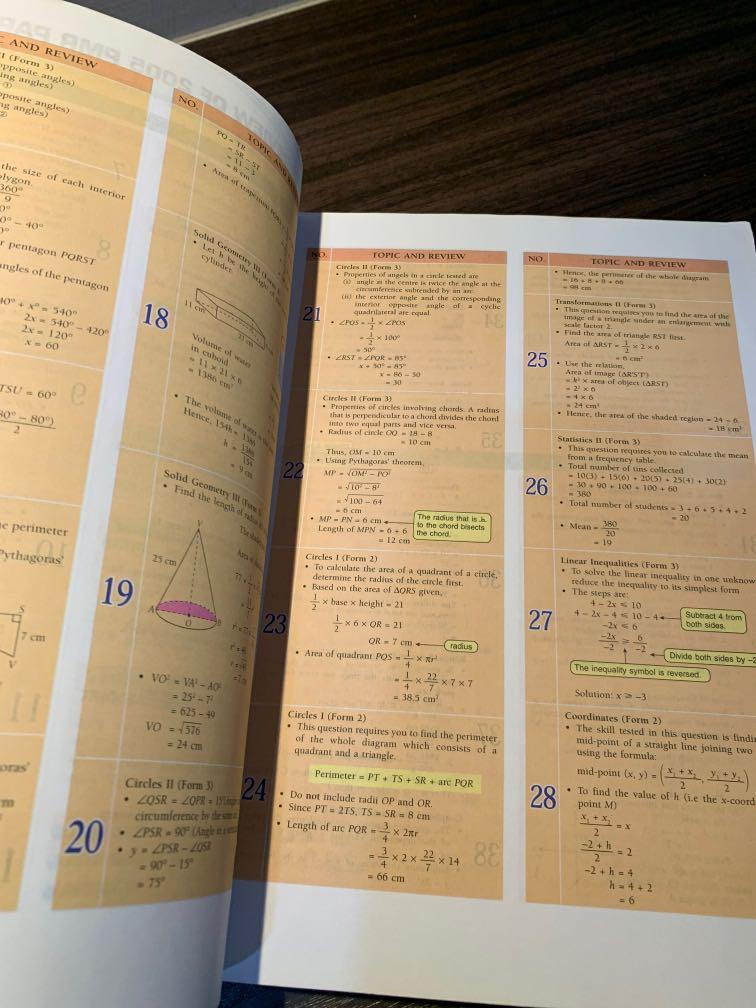 C AND REVIEW
(Form 3)
opposite angles)
ing angles)
posite angles)
ng angles)
the size of each interior
lygon.
360°
9
0° – 40°
r pentagon PQRST
angles of the pentagon
40° + x° = 540°
2x = 540° – 420°
2x = 120°
x = 60
TSU = 60°
80° – 80°)
2
e perimeter
Pythagoras'
S
7 cm
V
oras'
m
NO.
TOPIC AND
PQ = TR
= SR – ST
= 11 – 3
= 8 cm
• Area of trapezium
18
Solid Geometry III (Form
• Let h be the height of
cylinder.
11 cm
21 cm
Volume of water
in cuboid
= 11 × 21 × 6
= 1386 cm³
• The volume of water
Hence, 154h = 1386
h = 1386
154
= 9 cm
19
Solid Geometry III (Form
• Find the length of
V
25 cm
A
O
B
• VO² = VA² – AO²
= 25² – 7²
= 625 – 49
VO = √576
= 24 cm
20
Circles II (Form 3)
• ∠QSR = ∠QPR = 15°
circumference by the same
• ∠PSR = 90° (Angle in a
• y = ∠PSR – ∠QSR
= 90° – 15°
= 75°
NO.
TOPIC AND REVIEW
21
Circles II (Form 3)
• Properties of angels in a circle tested are
(i) angle at the centre is twice the angle at the
circumference subtended by an arc.
(ii) the exterior angle and the corresponding
interior opposite angle of a cyclic
quadrilateral are equal.
• ∠PQS = 1/2 × ∠POS
= 1/2 × 100°
= 50°
• ∠RST = ∠PQR = 85°
x + 50° = 85°
x = 86 – 50
= 30
22
Circles II (Form 3)
• Properties of circles involving chords. A radius
that is perpendicular to a chord divides the chord
into two equal parts and vice versa.
• Radius of circle OQ = 18 – 8
= 10 cm
Thus, OM = 10 cm
• Using Pythagoras' theorem,
MP = √OM² – PO²
= √10² – 8²
= √100 – 64
= 6 cm
• MP = PN = 6 cm
Length of MPN = 6 + 6
= 12 cm
The radius that is ⊥
to the chord bisects
the chord.
23
Circles I (Form 2)
• To calculate the area of a quadrant of a circle,
determine the radius of the circle first.
• Based on the area of ΔQRS given,
1/2 × base × height = 21
1/2 × 6 × QR = 21
QR = 7 cm
radius
• Area of quadrant PQS = 1/4 × πr²
= 1/4 × 22/7 × 7 × 7
= 38.5 cm²
24
Circles I (Form 2)
• This question requires you to find the perimeter
of the whole diagram which consists of a
quadrant and a triangle.
Perimeter = PT + TS + SR + arc PQR
• Do not include radii OP and OR.
• Since PT = 2TS, TS = SR = 8 cm
• Length of arc PQR = 3/4 × 2πr
= 3/4 × 2 × 22/7 × 14
= 66 cm
NO.
TOPIC AND REVIEW
• Hence, the perimeter of the whole diagram
= 16 + 8 + 8 + 66
= 98 cm
25
Transformations II (Form 3)
• This question requires you to find the area of the
image of a triangle under an enlargement with
scale factor 2.
• Find the area of triangle RST first.
Area of ΔRST = 1/2 × 2 × 6
= 6 cm²
• Use the relation,
Area of image (ΔR'S'T')
= k² × area of object (ΔRST)
= 2² × 6
= 4 × 6
= 24 cm²
• Hence, the area of the shaded region = 24 – 6
= 18 cm²
26
Statistics II (Form 3)
• This question requires you to calculate the mean
from a frequency table.
• Total number of tins collected
= 10(3) + 15(6) + 20(5) + 25(4) + 30(2)
= 30 + 90 + 100 + 100 + 60
= 380
• Total number of students = 3 + 6 + 5 + 4 + 2
= 20
• Mean = 380/20
= 19
27
Linear Inequalities (Form 3)
• To solve the linear inequality in one unknow
reduce the inequality to its simplest form
• The steps are:
4 – 2x ⩽ 10
4 – 2x – 4 ⩽ 10 – 4
Subtract 4 from
both sides.
–2x ⩽ 6
–2x/–2 ⩾ 6/–2
Divide both sides by –2
The inequality symbol is reversed.
Solution: x ⩾ –3
28
Coordinates (Form 2)
• The skill tested in this question is findi
mid-point of a straight line joining two
using the formula:
mid-point (x, y) = (x₁ + x₂/2, y₁ + y₂/2)
• To find the value of h (i.e the x-coord
point M)
x₁ + x₂/2 = x
–2 + h/2 = 2
–2 + h = 4
h = 4 + 2
= 6